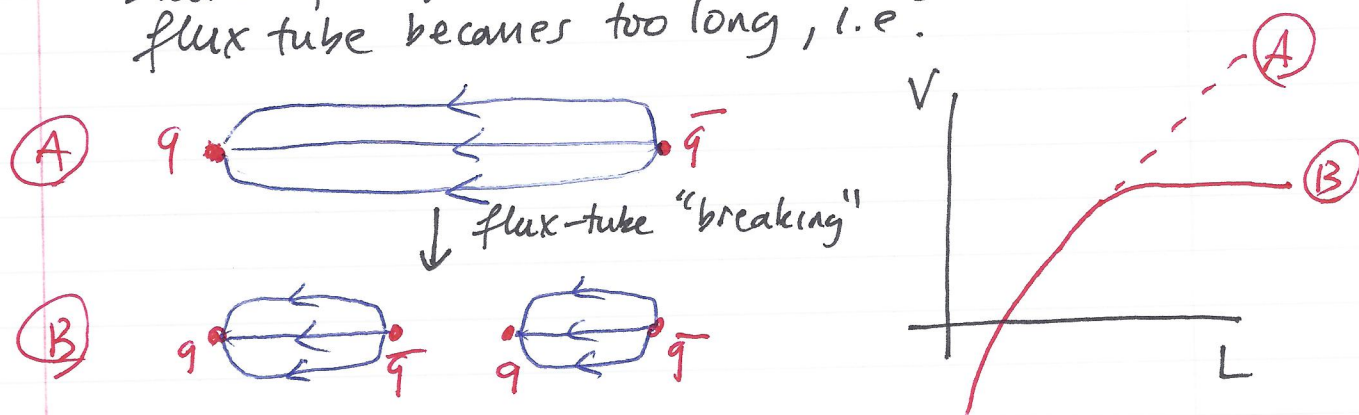 flux tube becomes too long, i.e.
A q q̄
flux-tube "breaking"
B q q̄ q q̄
V
A
B
L